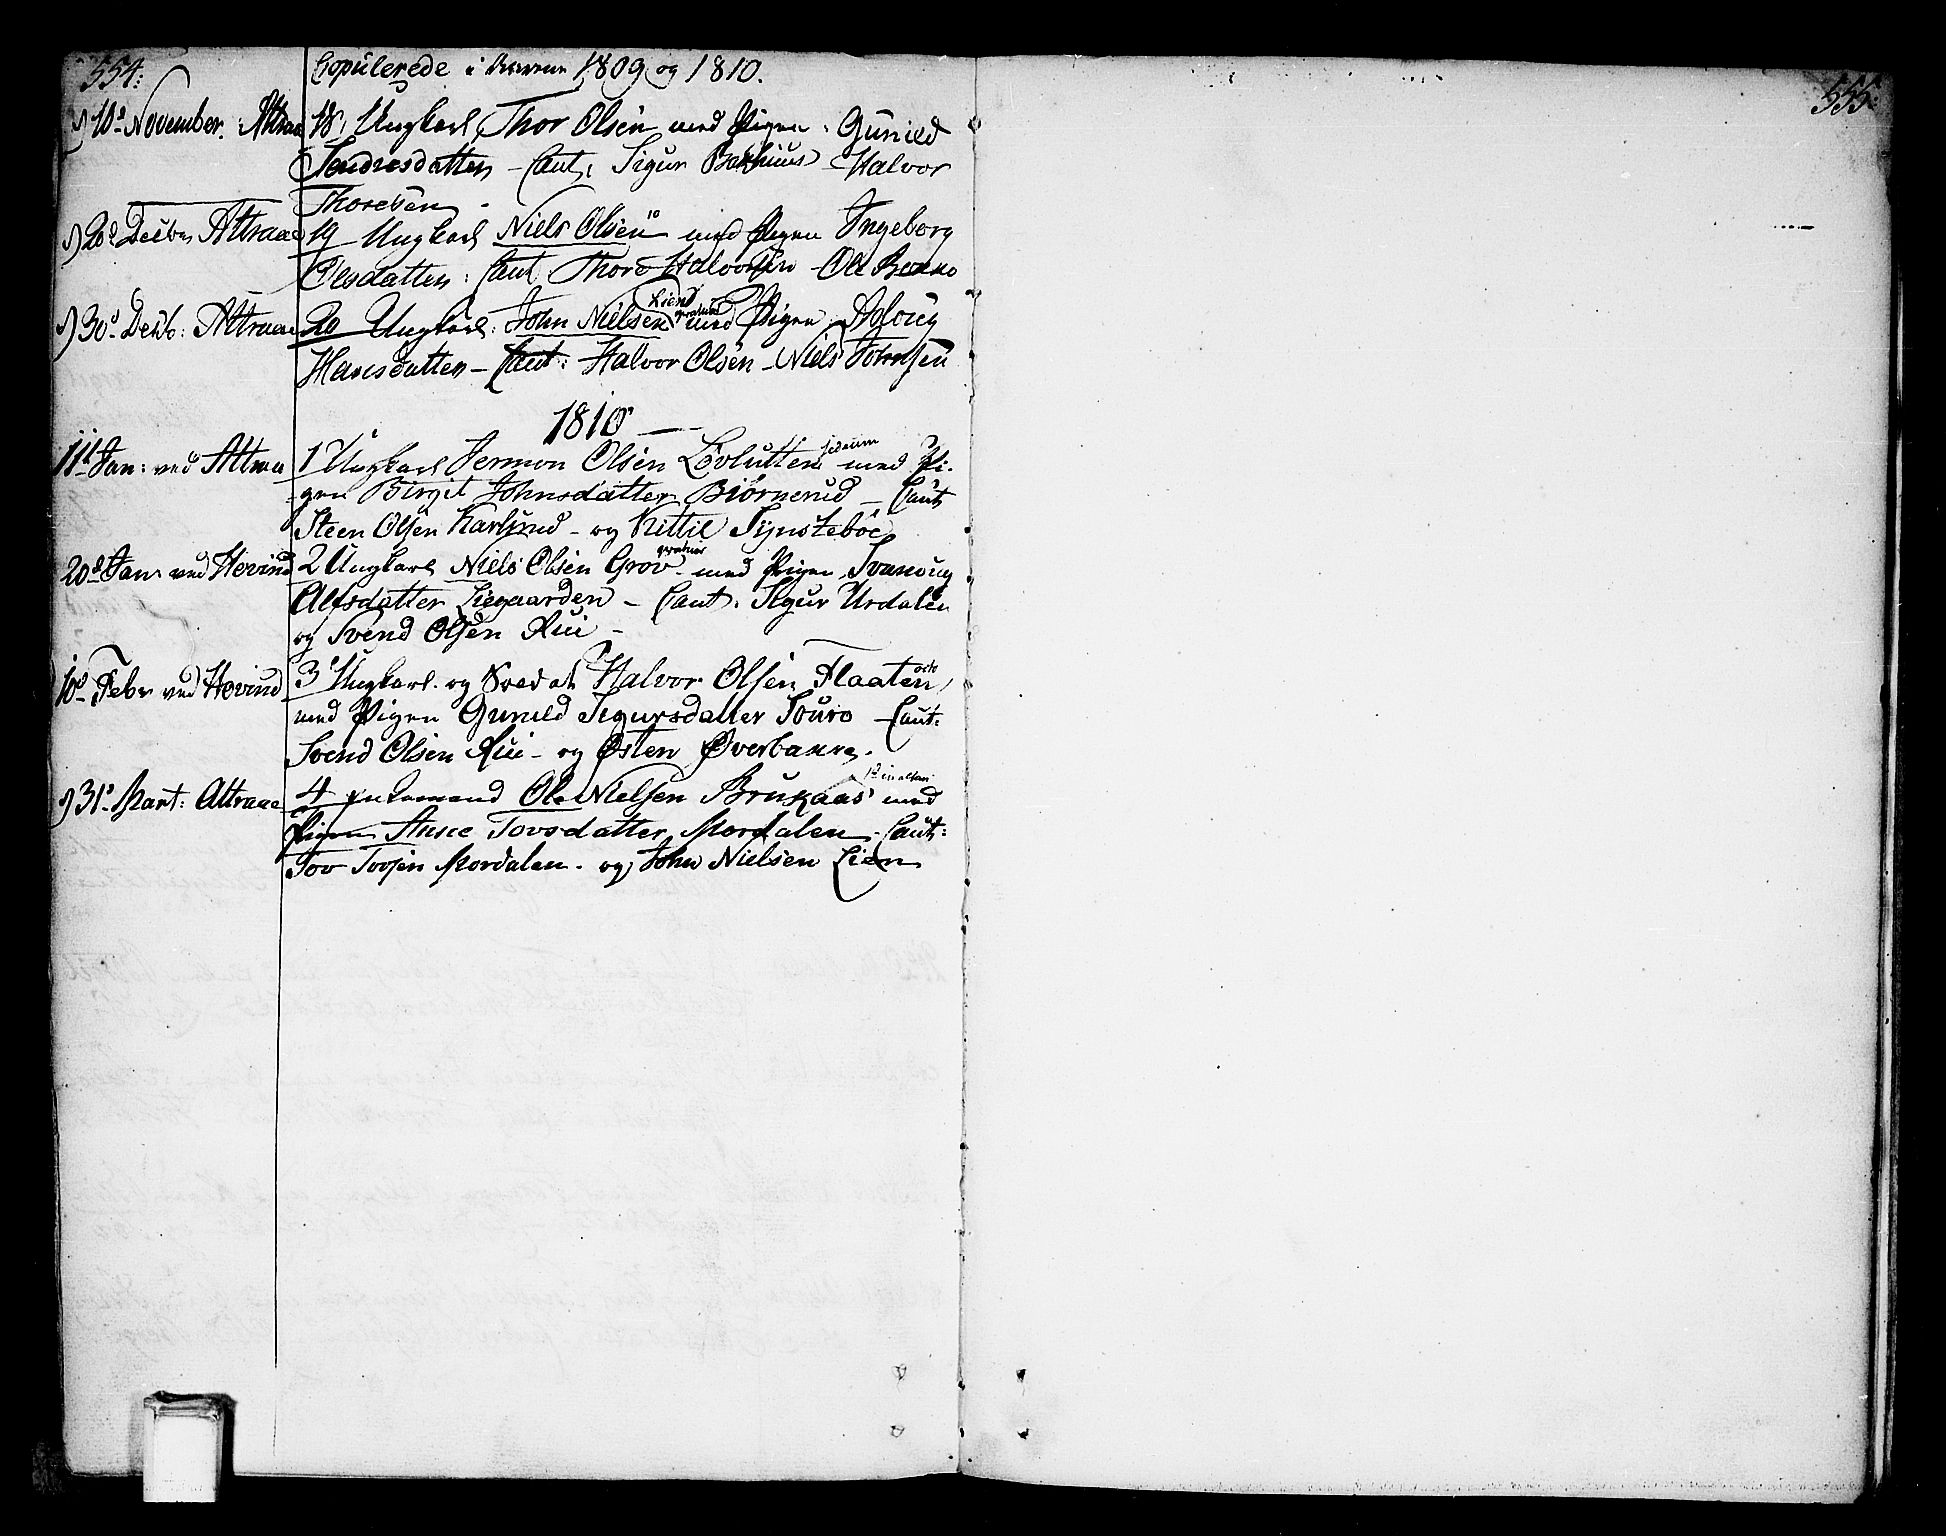 554:
Copulerede i Aarene 1809 og 1810.
10d November. Attraa 18, Ungkarl Thor Olsen med Pigen Gunild
Sondresdatter - Caut: Sigur Bakhuus - Halvor
Thoresen -
20d Decbr Attraae 19 Ungkarl Niels Olsen med Pigen Ingeborg
Olsdatter: Caut Thord Halvorsen - Ole
Liend
30d Decb: Attraae 20 Ungkarl: John Nielsen gratuit med Pigen Asloug
Hansdatter - Caut: Halvor Olsen - Niels Johnsen
1810 -
11t Jan: ved Attraa 1 Ungkarl Jermon Olsen Løvlutten med Pi-
gen Birgit Johnsdatter Biørnerud - Caut
Steen Olsen Karlsrud - og Kittil Synstebøe
20d Jan: ved Hovind 2 Ungkarl Niels Olsen Grov med Pigen Svanoug
Alfsdatter Liegaarden - Caut: Sigur Urdalen
og Svend Olsen Rui -
10d Febr ved Hovind 3 Ungkarl og Soldat Halvor Olsen Flaaten
med Pigen Gunild Sigursdatter Souro - Caut:
Svend Olsen Rui - og Østen Øverbakke.
31d Mart: Attraae 4 Enkemand Ole Nielsen Brukaas med
Pigen Anne Tovsdatter Mordalen - Caut:
Tov Tovsen Mordalen - og John Nielsen Lien
555: